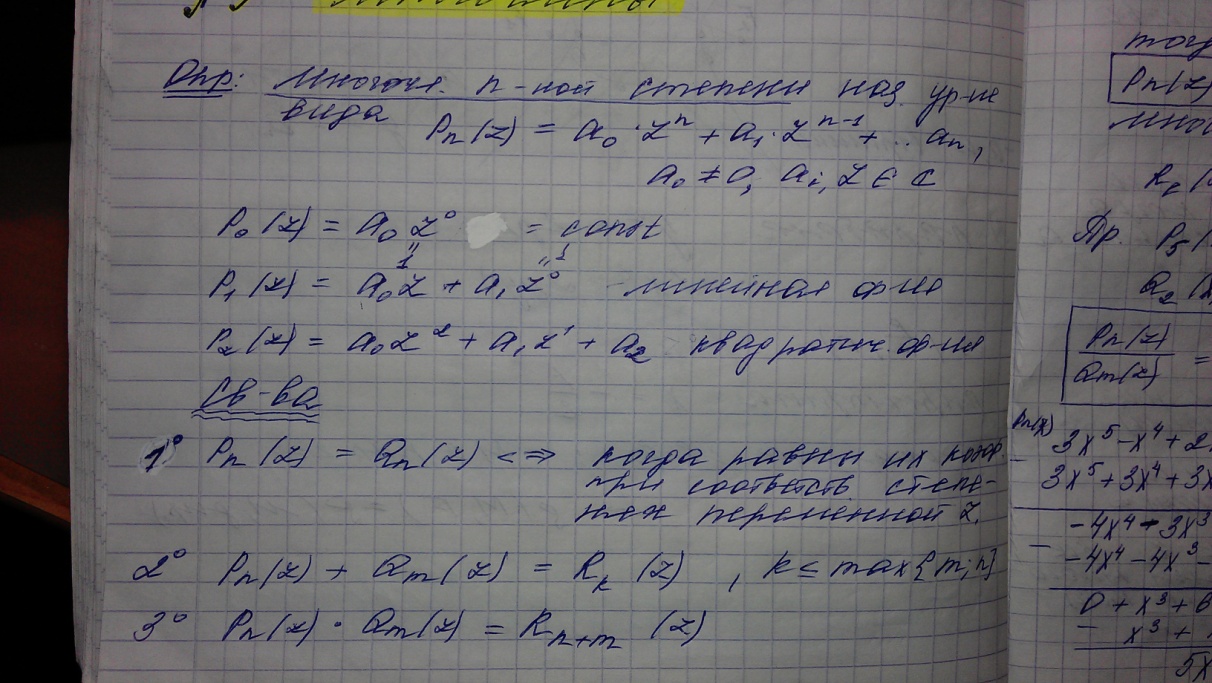 Опр: Многочл. n-ной степени наз. ур-ие
вида
Pn(z) = a₀·zⁿ + a₁·zⁿ⁻¹ + .. aₙ,
a₀ ≠ 0, aᵢ, z ∈ C
P₀(z) = a₀ z⁰ = const
"
1
" 1
P₁(z) = a₀z + a₁z⁰ линейная ф-ия
P₂(z) = a₀z² + a₁z¹ + a₂ квадратич. ф-ия
Св-ва
1° Pn(z) = Qn(z) <=> когда равны их коэф
при соответств степе-
нях переменной z.
2° Pn(z) + Qm(z) = Rk(z) , k ≤ max{m;n}
3° Pn(z) · Qm(z) = Rn+m (z)
Pn(z)
Пр. P₅
Q₂
Pn(z)
Qm(z) =
Pn(x)
3x⁵ - x⁴ + 2
- 3x⁵ + 3x⁴ + 3x
-4x⁴ - 3x³
- -4x⁴ - 4x³ -
0 + x³ + 6
- x³ +
5x